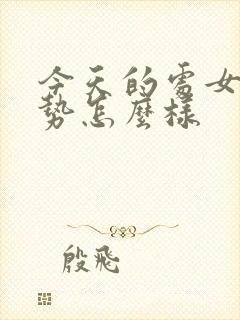 今天的處女
勢怎麼樣
殷飛